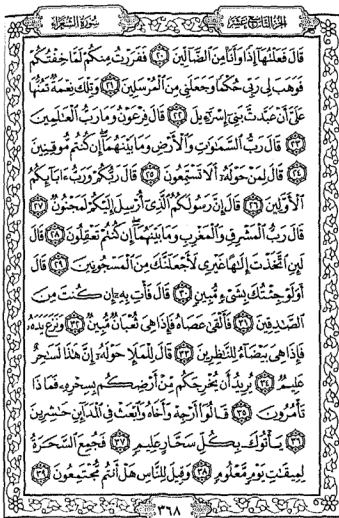 الجزء التاسع عشر
سورة الشعراء
قَالَ فَعَلْتُهَآ إِذًا وَأَنَا۠ مِنَ ٱلضَّآلِّينَ ٢٠ فَفَرَرْتُ مِنكُمْ لَمَّا خِفْتُكُمْ
فَوَهَبَ لِى رَبِّى حُكْمًا وَجَعَلَنِى مِنَ ٱلْمُرْسَلِينَ ٢١ وَتِلْكَ نِعْمَةٌ تَمُنُّهَا
عَلَىَّ أَنْ عَبَّدتَّ بَنِىٓ إِسْرَٰٓءِيلَ ٢٢ قَالَ فِرْعَوْنُ وَمَا رَبُّ ٱلْعَـٰلَمِينَ
٢٣ قَالَ رَبُّ ٱلسَّمَـٰوَٰتِ وَٱلْأَرْضِ وَمَا بَيْنَهُمَآ إِن كُنتُم مُّوقِنِينَ
٢٤ قَالَ لِمَنْ حَوْلَهُۥٓ أَلَا تَسْتَمِعُونَ ٢٥ قَالَ رَبُّكُمْ وَرَبُّ ءَابَآئِكُمُ
ٱلْأَوَّلِينَ ٢٦ قَالَ إِنَّ رَسُولَكُمُ ٱلَّذِىٓ أُرْسِلَ إِلَيْكُمْ لَمَجْنُونٌ ٢٧
قَالَ رَبُّ ٱلْمَشْرِقِ وَٱلْمَغْرِبِ وَمَا بَيْنَهُمَآ إِن كُنتُمْ تَعْقِلُونَ ٢٨ قَالَ
لَئِنِ ٱتَّخَذْتَ إِلَـٰهًا غَيْرِى لَأَجْعَلَنَّكَ مِنَ ٱلْمَسْجُونِينَ ٢٩ قَالَ
أَوَلَوْ جِئْتُكَ بِشَىْءٍ مُّبِينٍ ٣٠ قَالَ فَأْتِ بِهِۦٓ إِن كُنتَ مِنَ
ٱلصَّـٰدِقِينَ ٣١ فَأَلْقَىٰ عَصَاهُ فَإِذَا هِىَ ثُعْبَانٌ مُّبِينٌ ٣٢ وَنَزَعَ يَدَهُۥ
فَإِذَا هِىَ بَيْضَآءُ لِلنَّـٰظِرِينَ ٣٣ قَالَ لِلْمَلَإِ حَوْلَهُۥٓ إِنَّ هَـٰذَا لَسَـٰحِرٌ
عَلِيمٌ ٣٤ يُرِيدُ أَن يُخْرِجَكُم مِّنْ أَرْضِكُم بِسِحْرِهِۦ فَمَاذَا
تَأْمُرُونَ ٣٥ قَالُوٓا۟ أَرْجِهْ وَأَخَاهُ وَٱبْعَثْ فِى ٱلْمَدَآئِنِ حَـٰشِرِينَ
٣٦ يَأْتُوكَ بِكُلِّ سَحَّارٍ عَلِيمٍ ٣٧ فَجُمِعَ ٱلسَّحَرَةُ
لِمِيقَـٰتِ يَوْمٍ مَّعْلُومٍ ٣٨ وَقِيلَ لِلنَّاسِ هَلْ أَنتُم مُّجْتَمِعُونَ ٣٩
٣٦٨